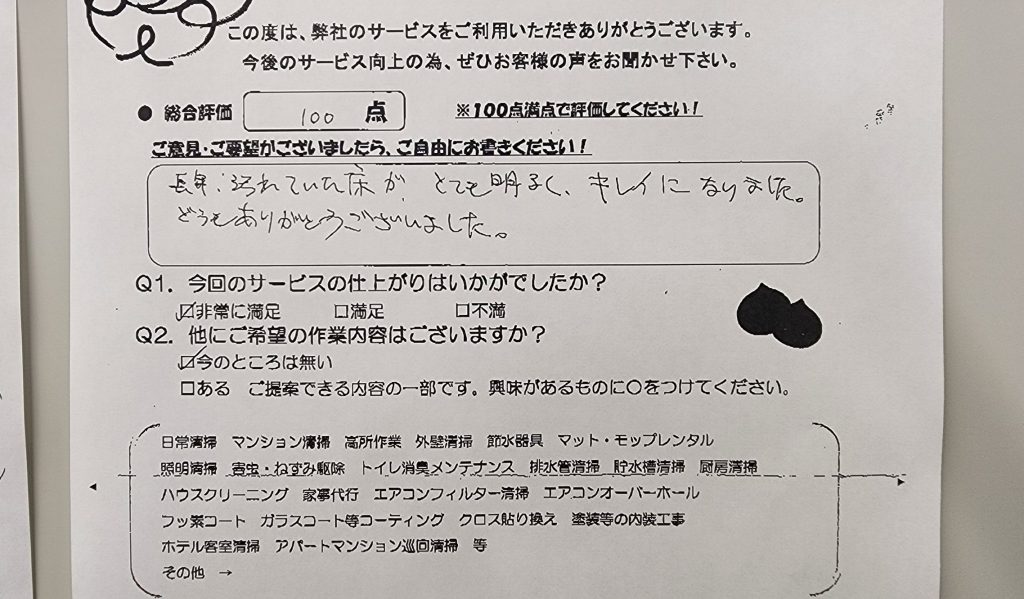 この度は、弊社のサービスをご利用いただきありがとうございます。
今後のサービス向上の為、ぜひお客様の声をお聞かせ下さい。
● 総合評価 100 点 ※100点満点で評価してください！
ご意見・ご要望がございましたら、ご自由にお書きください！
長年、汚れていた床が、とても明るく、キレイになりました。
どうもありがとうございました。
Q1. 今回のサービスの仕上がりはいかがでしたか？
☑非常に満足 □満足 □不満
Q2. 他にご希望の作業内容はございますか？
☑今のところは無い
□ある ご提案できる内容の一部です。興味があるものに○をつけてください。
日常清掃 マンション清掃 高所作業 外壁清掃 節水器具 マット・モップレンタル
照明清掃 害虫・ねずみ駆除 トイレ消臭メンテナンス 排水管清掃 貯水槽清掃 厨房清掃
ハウスクリーニング 家事代行 エアコンフィルター清掃 エアコンオーバーホール
フッ素コート ガラスコート等コーティング クロス貼り換え 塗装等の内装工事
ホテル客室清掃 アパートマンション巡回清掃 等
その他 →